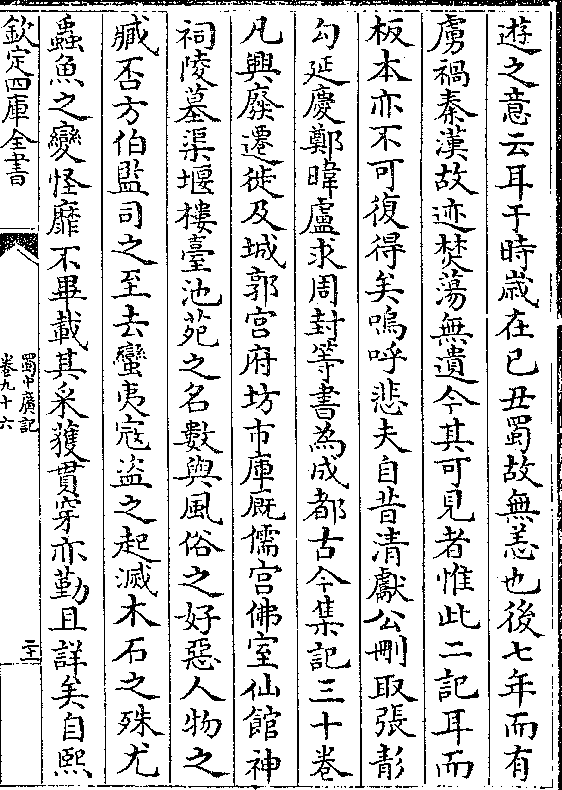 遊之意云耳于時歳在已丑蜀故無恙也後七年而有
虜禍秦漢故迹焚蕩無遺今其可見者惟此二記耳而
板本亦不可復得矣嗚呼悲夫自昔清獻公刪取張彭
勾延慶鄭暐盧求周封等書為成都古今集記三十卷
凡興廢遷徙及城郭宫府坊市庫厩儒宫佛室仙館神
祠陵墓渠堰樓臺池苑之名數與風俗之好惡人物之
臧否方伯監司之至去蠻夷寇盗之起滅木石之殊尤
蟲魚之變怪靡不畢載其采獲貫穿亦勤且詳矣自熙
欽定四庫全書
蜀中廣記
卷九十六
二十一